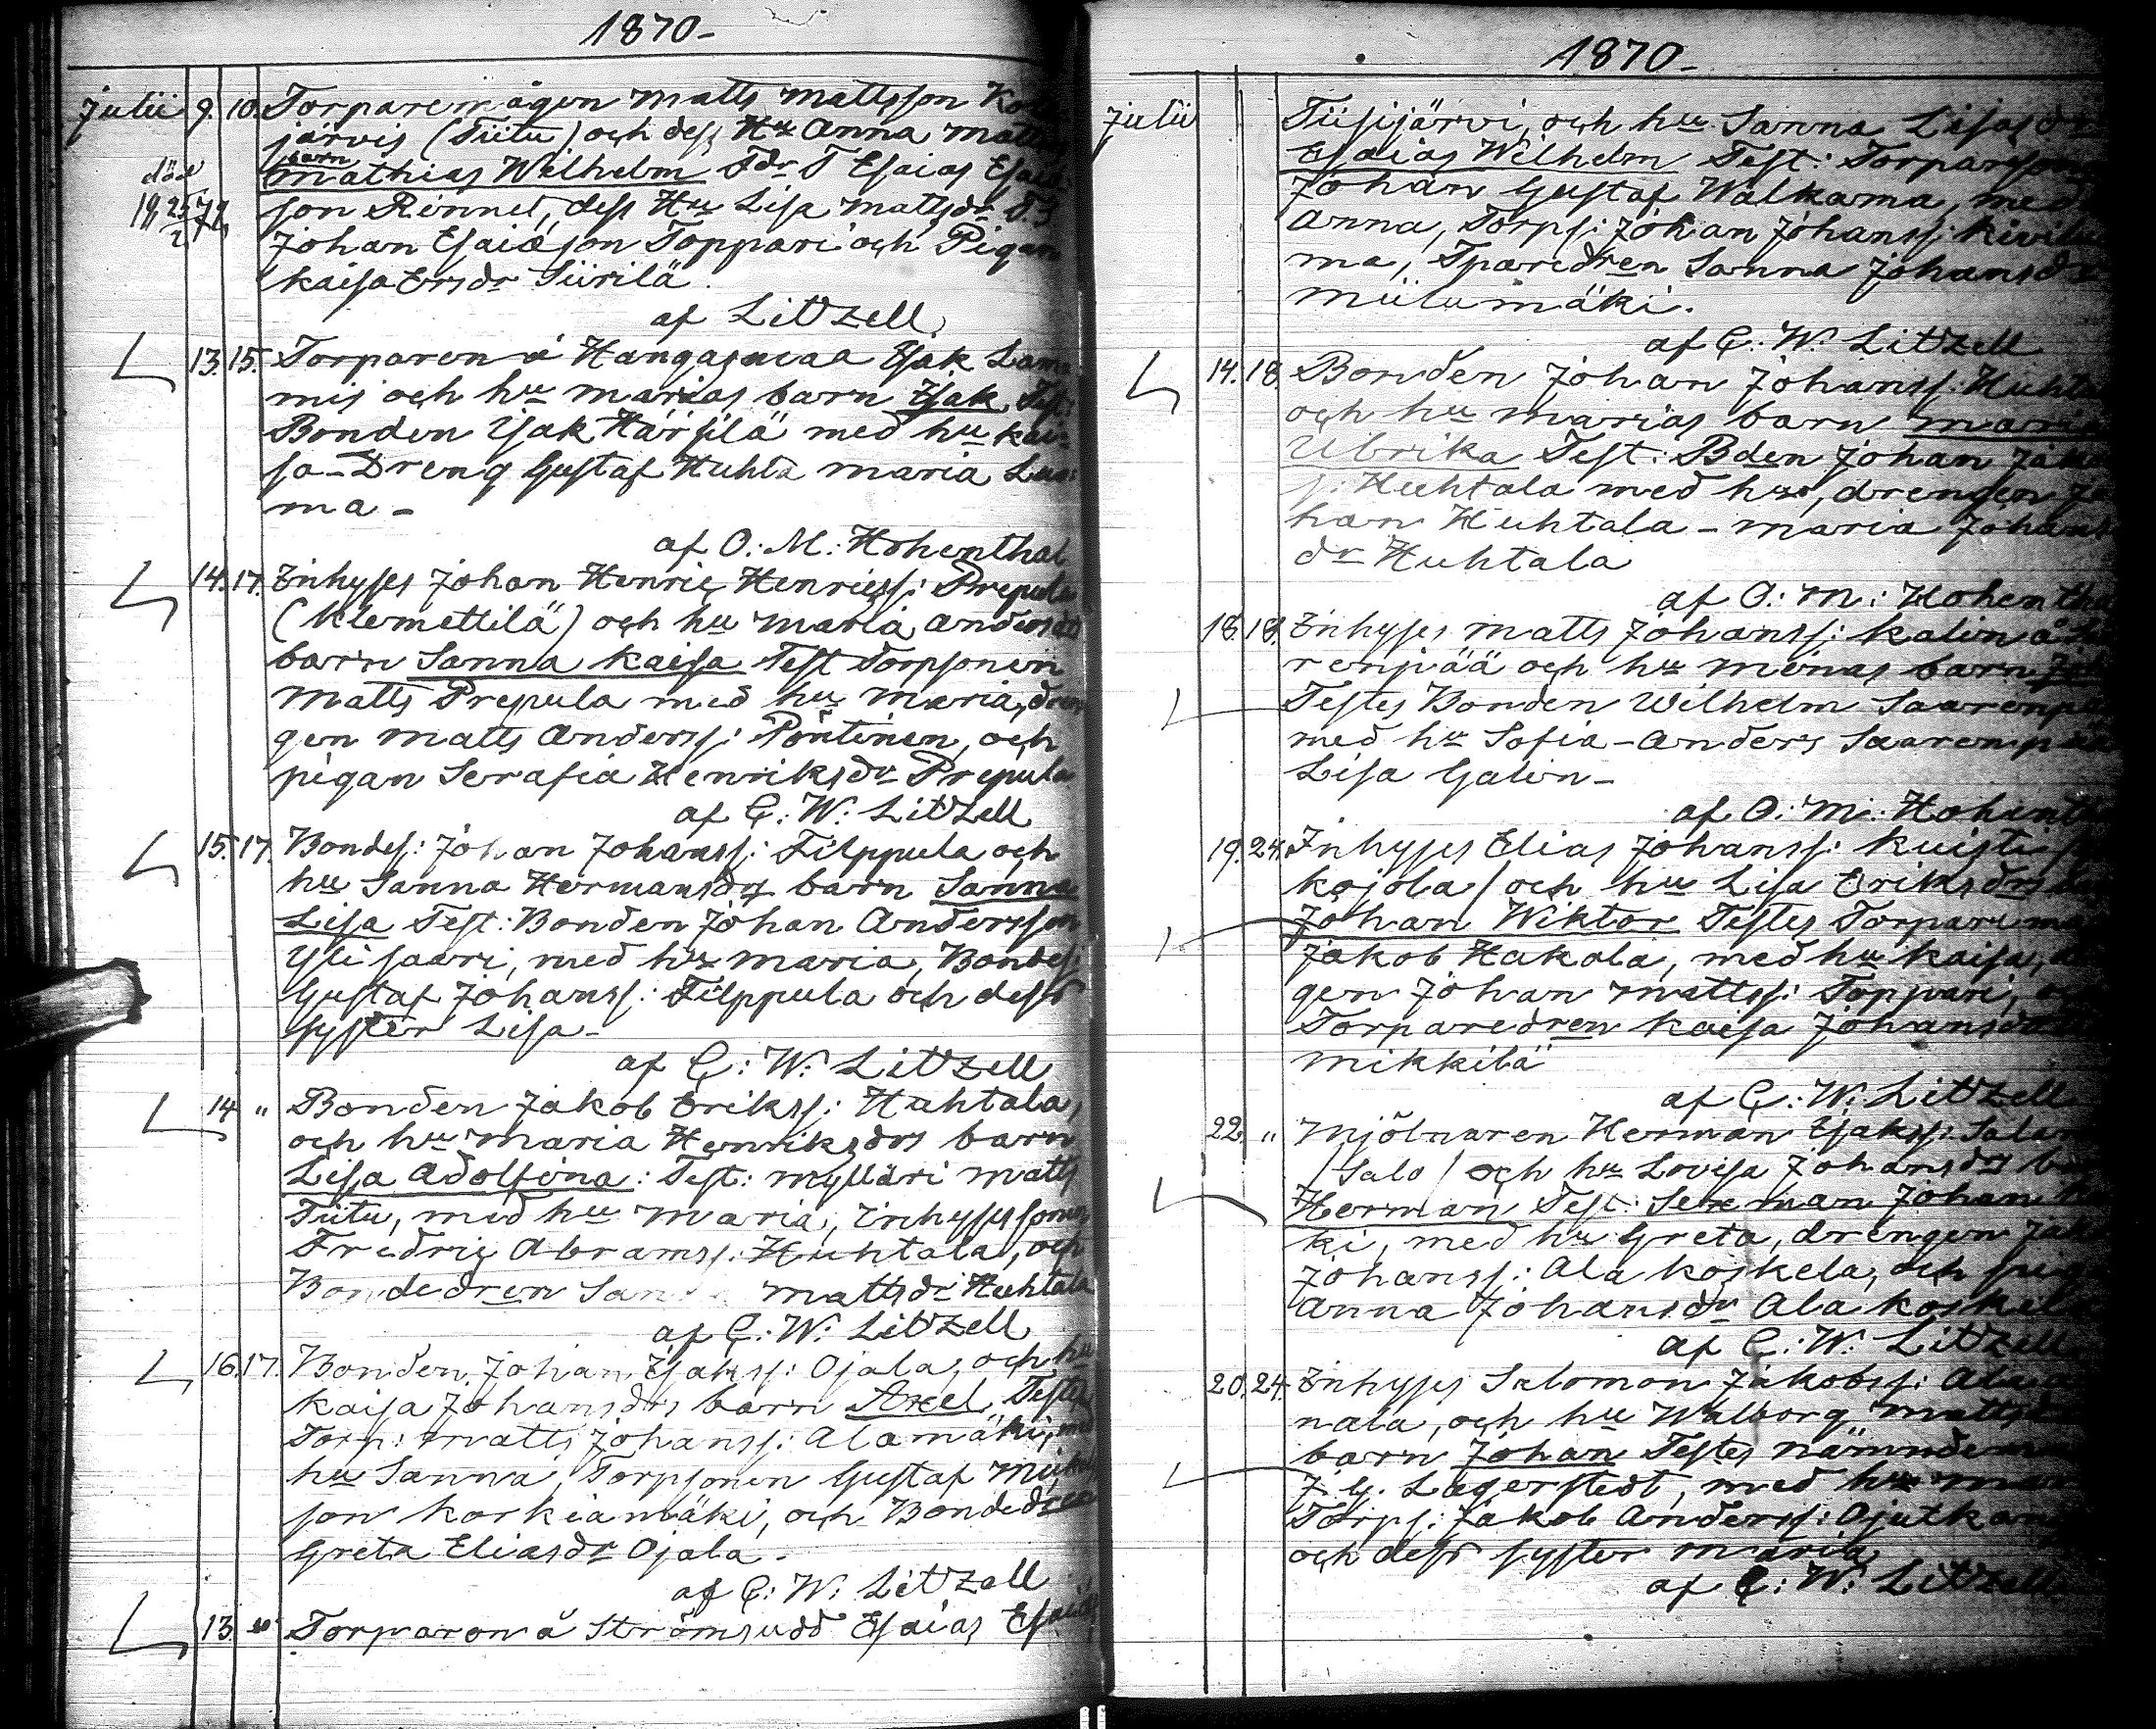 1870-
Julii 9. 10. Torparemågen Matts Mattsson
järvis (Tiitu) och dess Hu Anna Matts
barn
Mathias Wilhelm Fdr T Esaias Esaia
död
19 25/2 72
son Rinnet, dess Hu Lisa Mattsdr
Johan Esaiason Toppari och Pigan
Kaisa Ersdr Siirilä.
af Litzell.
13. 15. Torparen å Hangasuvaa Isak Lam
mis och hu Marias barn Isak, Test:
Bonden Isak Härsilä med hu Kai-
sa - Dreng Gustaf Huhta Maria Luo:
ma -
af O: M: Hohenthal
14. 17. Inhyses Johan Henric Henricss: Prepula
(Klemettilä) och hu Maria Andersdrs
barn Sanna Kaisa Test Torpsonen
Matts Prepula med hu Maria, dren
gen Matts Anderss: Pöntinen, och
pigan Serafia Henriksdr Prepula
af C: W: Litzell
15. 17. Bondes: Johan Johanss: Filppula och
hu Sanna Hermansdrs barn Sanna
Lisa Test: Bonden Johan Andersson
Ylisaari, med hu Maria, Bondes:
Gustaf Johanss: Filppula och dess
syster Lisa -
af C: W: Litzell
14 " Bonden Jakob Erikss: Huhtala,
och hu Maria Henriksdrs barn
Lisa Adolfina: Test: Mylläri Matts
Tiitu, med hu Maria, Inhysessonen
Fredric Abramss: Huhtala, och
Bondedren San Mattsdr Huhtala
af C: W: Litzell
16. 17. Bonden Johan Isakss: Ojala, och hu
Kaisa Johansdrs barn Axel, Testes
Torp: Matts Johanss: Alamäki, med
hu Sanna, Torpsonen Gustaf
son Korkiamäki, och Bondedren
Greta Eliasdr Ojala.
af C: W: Litzell
13 " Torparen å Strömsudd Esaias Esaias
1870-
Julii Tiisijärvi, och hu Sanna Lisas
Esaias Wilhelm Test: Torpareson
Johan Gustaf Walkama, med
Anna, Torps: Johan Johanss: Kivilu
ma, Tparedren Sanna Johansdr
Miilumäki.
af C: W: Litzell
14. 18. Bonden Johan Johanss: Huhta
och hu Marias barn Maria
Ulrika Test: Bden Johan Jako
s: Huhtala med hu, drengen Jo
han Huhtala - Maria Johans
dr Huhtala
af O: M: Hohentha
18. 19. Inhyses Matts Johanss: Kalin å
renpää och hu Minas barn
Testes Bonden Wilhelm Saarenpää
med hu Sofia - Anders Saarenpää
Lisa Galin -
af O: M: Hohentha
19. 24. Inhyses Elias Johanss: Kuisti
kojola / och hu Lisa Eriksdrs
Johan Wiktor Testes Torpare
Jakob Hakola, med hu Kaisa,
gen Johan Mattss: Toppari,
Torparedren Kaisa Johansdr
Mikkilä
af C: W: Litzell
22. " Mjölnaren Herman Isakss: Sala
/ Salo / och hu Lovisa Johansdrs
Herman Test: Sexman Johan
ki, med hu Greta, drengen Jak
Johanss: Ala Koskela, och pig
Anna Johansdr Ala Koskela
af C: W: Litzell
20. 24. Inhyses Salomon Jakobss:
nala, och hu Walborg Matts
barn Johan Testes Nämndem
J. G. Lagerstedt, med hu
Torps: Jakob Anderss: Ojutkan
och dess syster Maria
af C: W: Litzell